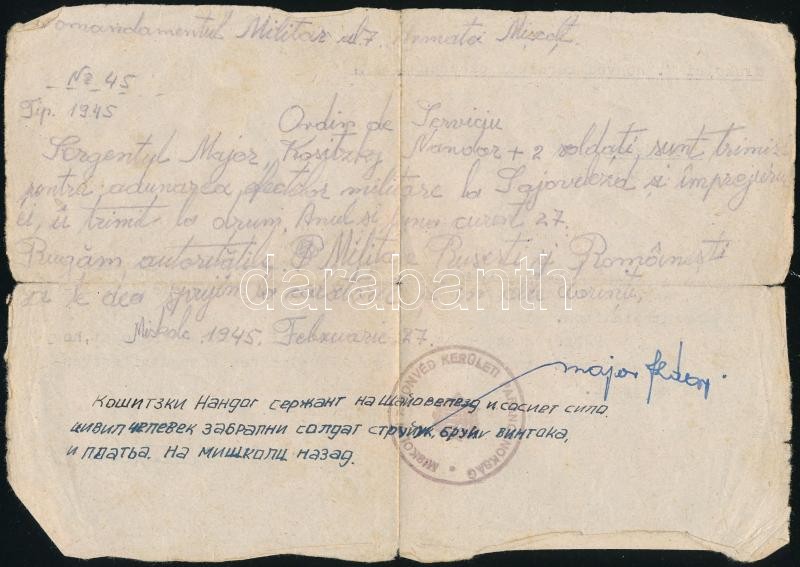 Comandamentul Militar al 7. Armată Mișcolț.
Nr 45
Tip. 1945
Ordin de Serviciu
Sergentul Major, Kositzky Nandor + 2 soldați, sunt trimiși
pentru adunarea efectelor militare la Sajovelezd și împrejurimi
trimit la drum, Anul și curent 27.
Rugăm autoritățile Militare Rusești și Românești
să le dea sprijin în
Miskolc 1945. Februarie 27.
major
Кошитзки Нандог сержант на Шайовелезд и сосиет сило.
цивил челевек забрапни солдат струйж, бруйv винтока,
и платьа. На мишколц назад.
HONVÉD KERÜLETI PARANCSNOKSÁG * MISKOLC
darabanth